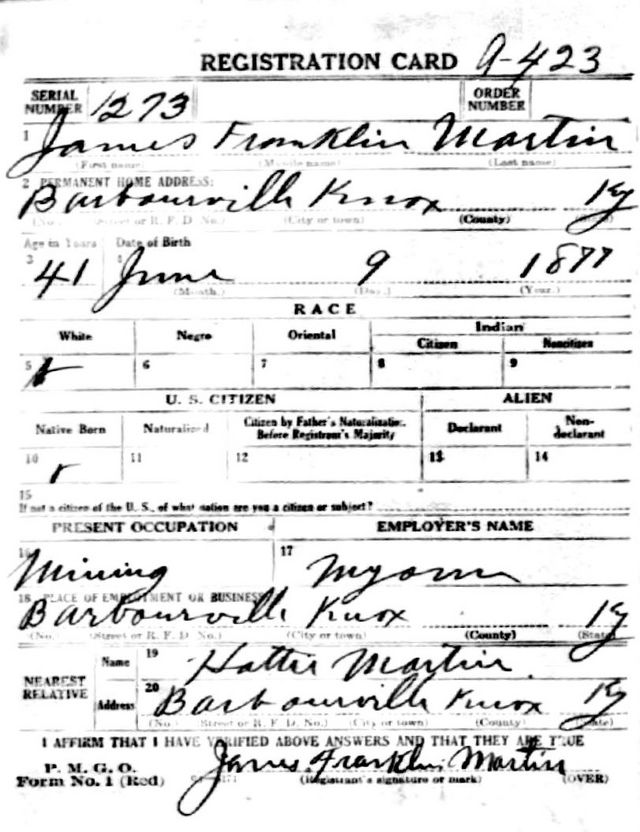 REGISTRATION CARD A-423
SERIAL NUMBER 1273 ORDER NUMBER
1 James Franklin Martin
(First name) (Middle name) (Last name)
2 PERMANENT HOME ADDRESS:
Barbourville Knox Ky
(No.) (Street or R. F. D. No.) (City or town) (County) (State)
Age in Years Date of Birth
3 41 4 June 9 1877
(Month.) (Day.) (Year.)
RACE
White Negro Oriental Indian
Citizen Noncitizen
5 6 7 8 9
U. S. CITIZEN ALIEN
Native Born Naturalized Citizen by Father's Naturalization Before Registrant's Majority Declarant Non-declarant
10 11 12 13 14
15
If not a citizen of the U. S., of what nation are you a citizen or subject?
PRESENT OCCUPATION EMPLOYER'S NAME
16 Mining 17
18 PLACE OF EMPLOYMENT OR BUSINESS:
Barbourville Knox Ky
(No.) (Street or R. F. D. No.) (City or town) (County) (State)
NEAREST RELATIVE Name 19 Hattie Martin
Address 20 Barbourville Knox Ky
(No.) (Street or R. F. D. No.) (City or town) (County) (State)
I AFFIRM THAT I HAVE VERIFIED ABOVE ANSWERS AND THAT THEY ARE TRUE
P. M. G. O.
Form No. 1 (Red) James Franklin Martin
(Registrant's signature or mark) (OVER)